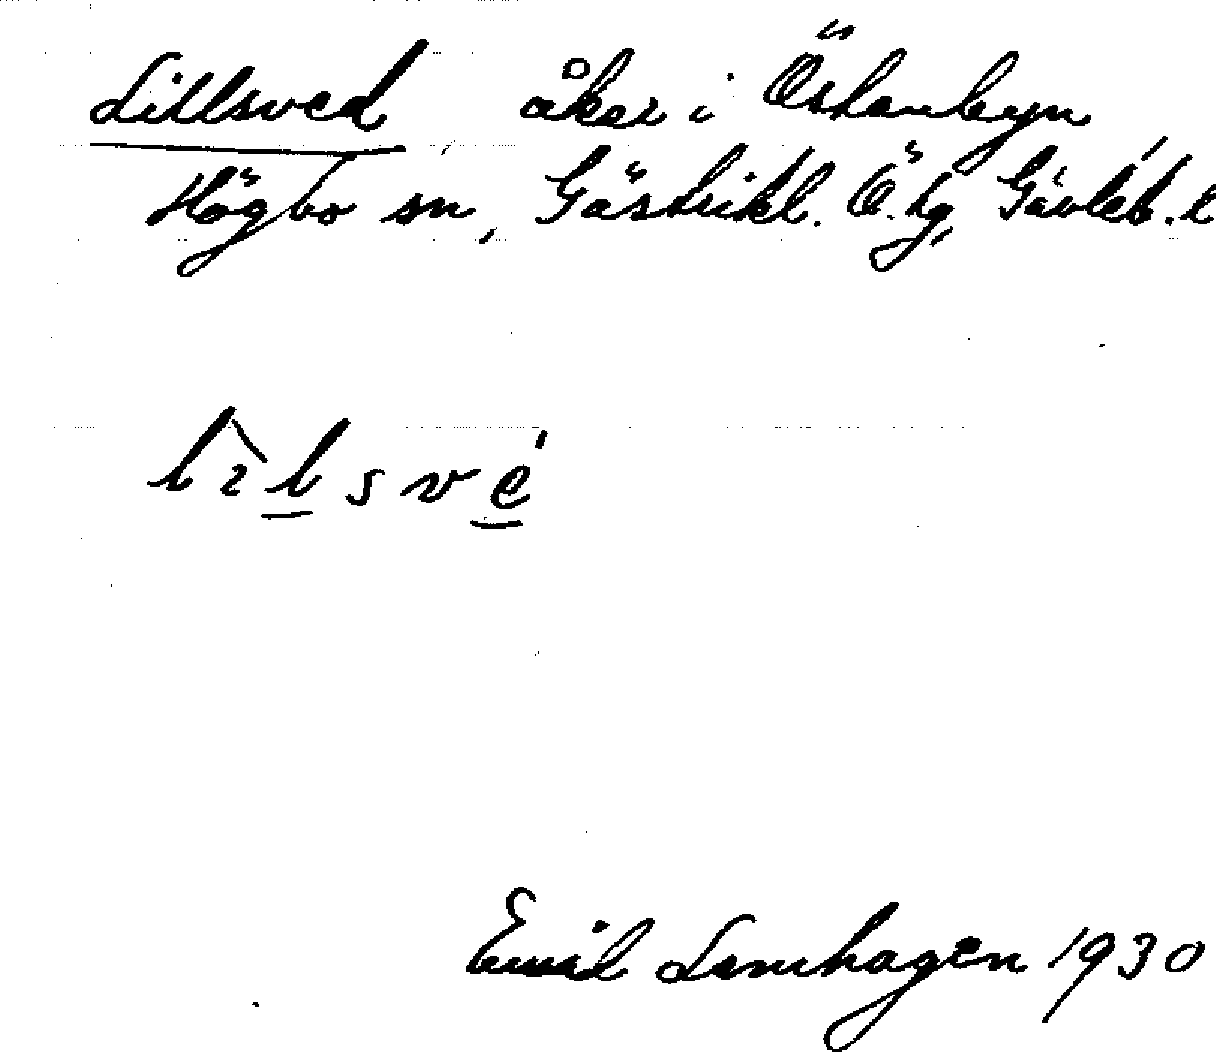 Lillsved åker i Östanbyn
Högbo sn, Gästrikl. Ö. tg, Gävleb. l
lìlsvé
Emil Lennhagen 1930